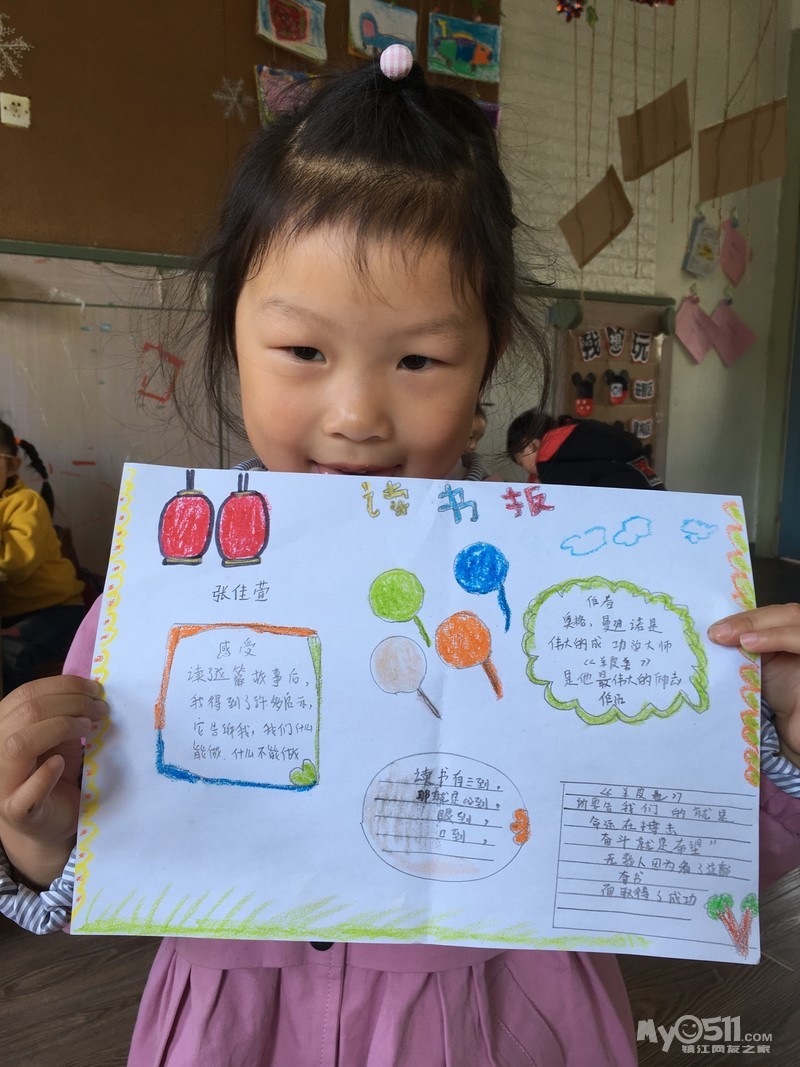 我想玩
读书报
张佳萱
感受
读这篇故事后,
我得到了许多启示,
它告诉我,我们什么
能做、什么不能做
作者
奥格·曼迪诺是
伟大的成功学大师
《羊皮卷》
是他最伟大的励志
读书有三到,
那就是心到,
眼到,
口到,
《羊皮卷》
所要告我们的就是
命运在搏击
奋斗就是希望”
无数人因为看了这部
奇书
而取得了成功
MyO511.COM
镇江网友之家